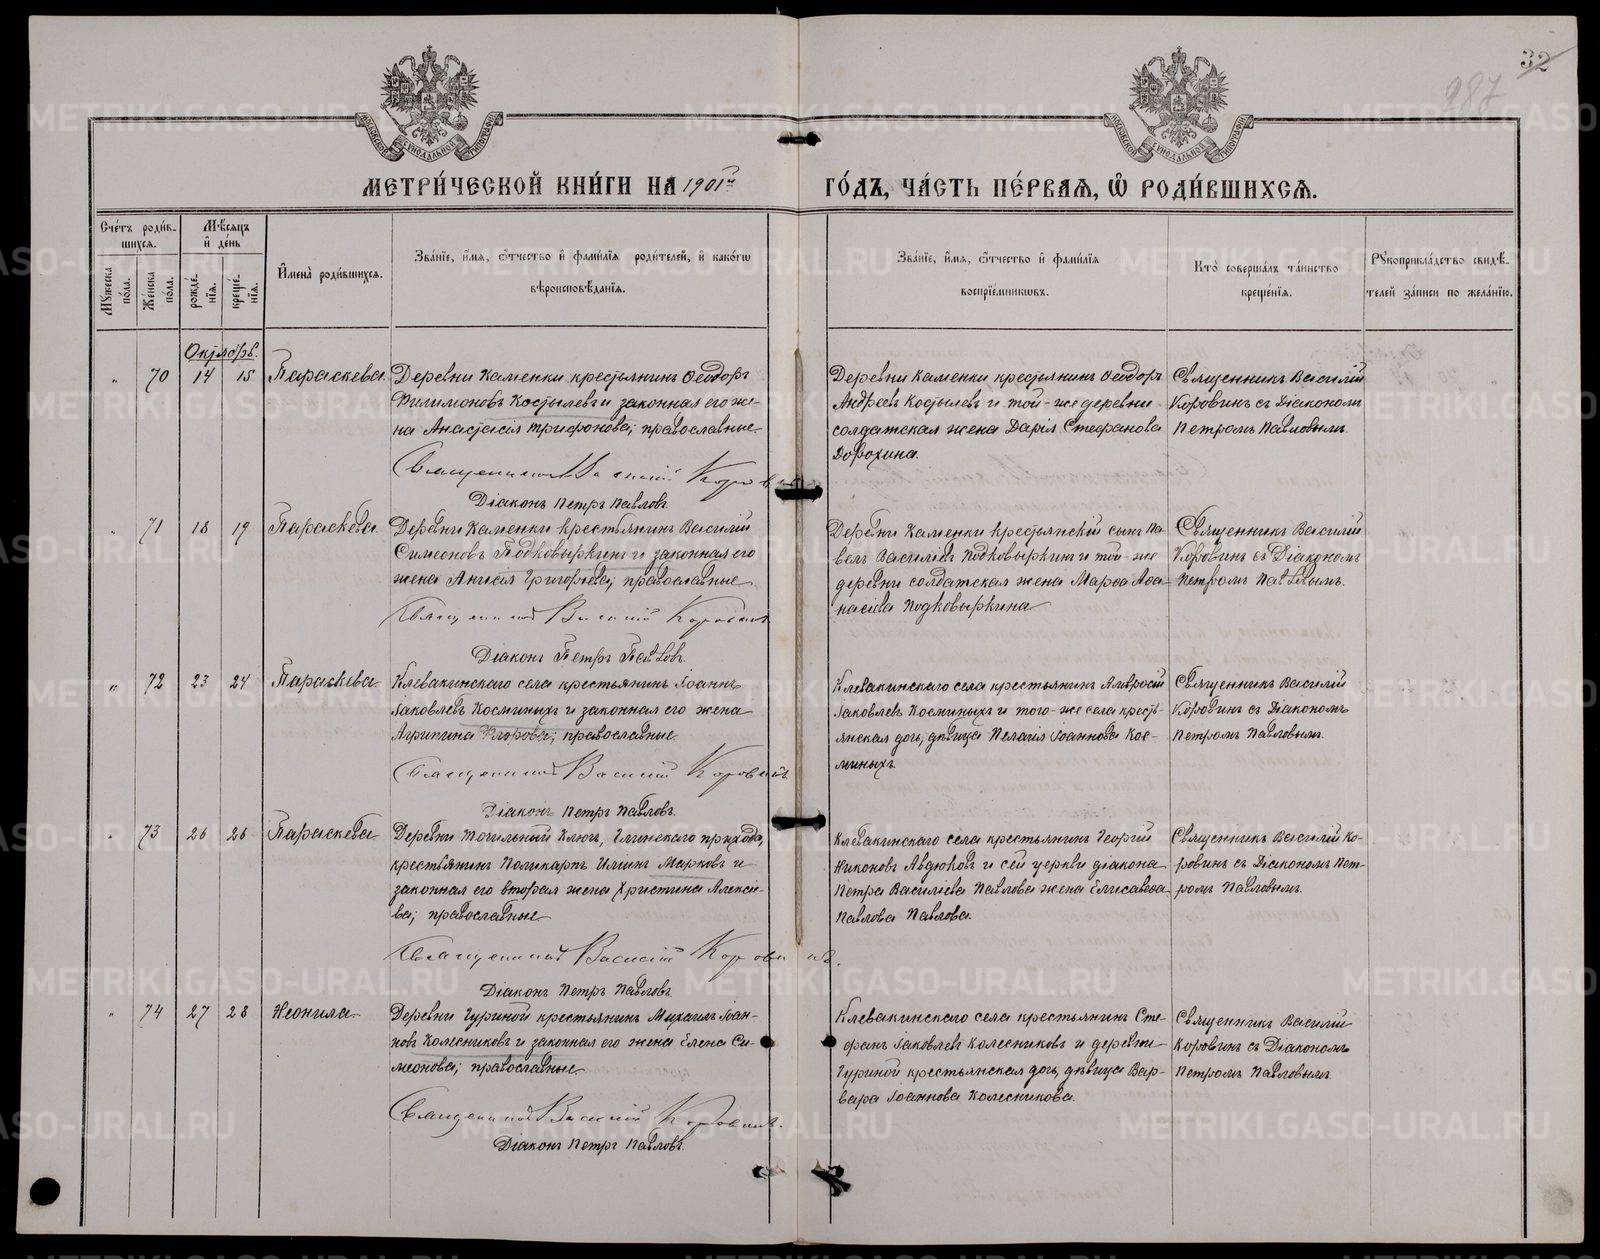 32
287
МЕТРИ́ЧЕСКОЙ КНИ́ГИ НА 1901й ГО́ДЪ, ЧА́СТЬ ПЕ́РВАЯ, Ѡ РОДИ́ВШИХСЯ.
Сче́тъ роди́в-
шихся.
Мѣсяцъ
и́ де́нь
Му́жеска по́ла.
Же́нска по́ла.
рожде́-
нїя.
креще́-
нїя.
И́мена̀ роди́вшихся.
Зва́нїе, и́мя, ѻ́тчество и́ фами́лїя роди́телей, и́ како́гѡ
вѣроисповѣ́данїя.
Зва́нїе, и́мя, ѻ́тчество и́ фами́лїя
воспрїе́мникѡвъ.
Кто̀ соверша́лъ та́инство
креще́нїя.
Рꙋкоприкла́дство свидѣ́-
телей за́писи по жела́нїю.
Октябрь.
" 70 14 15 Параскева.
Деревни Каменки крестьянинъ Ѳеодоръ
Филимоновъ Костылевъ и законная его же-
на Анастасія Трифонова; православные.
Священникъ Василій Коровинъ
Діаконъ Петръ Павловъ.
Деревни Каменки крестьянинъ Ѳеодоръ
Андреевъ Костылевъ и той-же деревни
солдатская жена Дарія Стефанова
Дорохина.
Священникъ Василій
Коровинъ съ Діакономъ
Петромъ Павловымъ.
" 71 18 19 Параскева.
Деревни Каменки крестьянинъ Василій
Симеоновъ Подковыркинъ и законная его
жена Анисія Григорьева; православные
Священникъ Василій Коровинъ
Діаконъ Петръ Павловъ.
Деревни Каменки крестьянскій сынъ Па-
велъ Василіевъ Подковыркинъ и той-же
деревни солдатская жена Марѳа Аѳа-
насіева Подковыркина
Священникъ Василій
Коровинъ съ Діакономъ
Петромъ Павловымъ.
" 72 23 24 Параскева.
Клевакинскаго села крестьянинъ Іоаннъ
Іаковлевъ Косминыхъ и законная его жена
Агрипина Егорова; православные.
Священникъ Василій Коровинъ
Діаконъ Петръ Павловъ.
Клевакинскаго села крестьянинъ Амвросій
Іаковлевъ Косминыхъ и того-же села кресть-
янская дочь, дѣвица Пелагія Іоаннова Кос-
миныхъ.
Священникъ Василій
Коровинъ съ Діакономъ
Петромъ Павловымъ.
" 73 26 26 Параскева.
Деревни Тогильный Ключъ, Глинскаго прихода,
крестьянинъ Поликарпъ Иліинъ Марковъ и
законная его вторая жена Христина Алексіе-
ва; православные
Священникъ Василій Коровинъ.
Діаконъ Петръ Павловъ.
Клевакинскаго села крестьянинъ Георгій
Никоновъ Авдюковъ и сей церкви діакона
Петра Василіева Павлова жена Елисавета
Павлова Павлова.
Священникъ Василій Ко-
ровинъ съ Діакономъ Пет-
ромъ Павловымъ.
" 74 27 28 Неонила.
Деревни Гуриной крестьянинъ Михаилъ Іоан-
новъ Колесниковъ и законная его жена Елена Си-
меонова; православные
Священникъ Василій Коровинъ.
Діаконъ Петръ Павловъ.
Клевакинскаго села крестьянинъ Сте-
фанъ Іаковлевъ Колесниковъ и деревни
Гуриной крестьянская дочь, дѣвица Вар-
вара Іоаннова Колесникова.
Священникъ Василій
Коровинъ съ Діакономъ
Петромъ Павловымъ.
METRIKI.GASO-URAL.RU